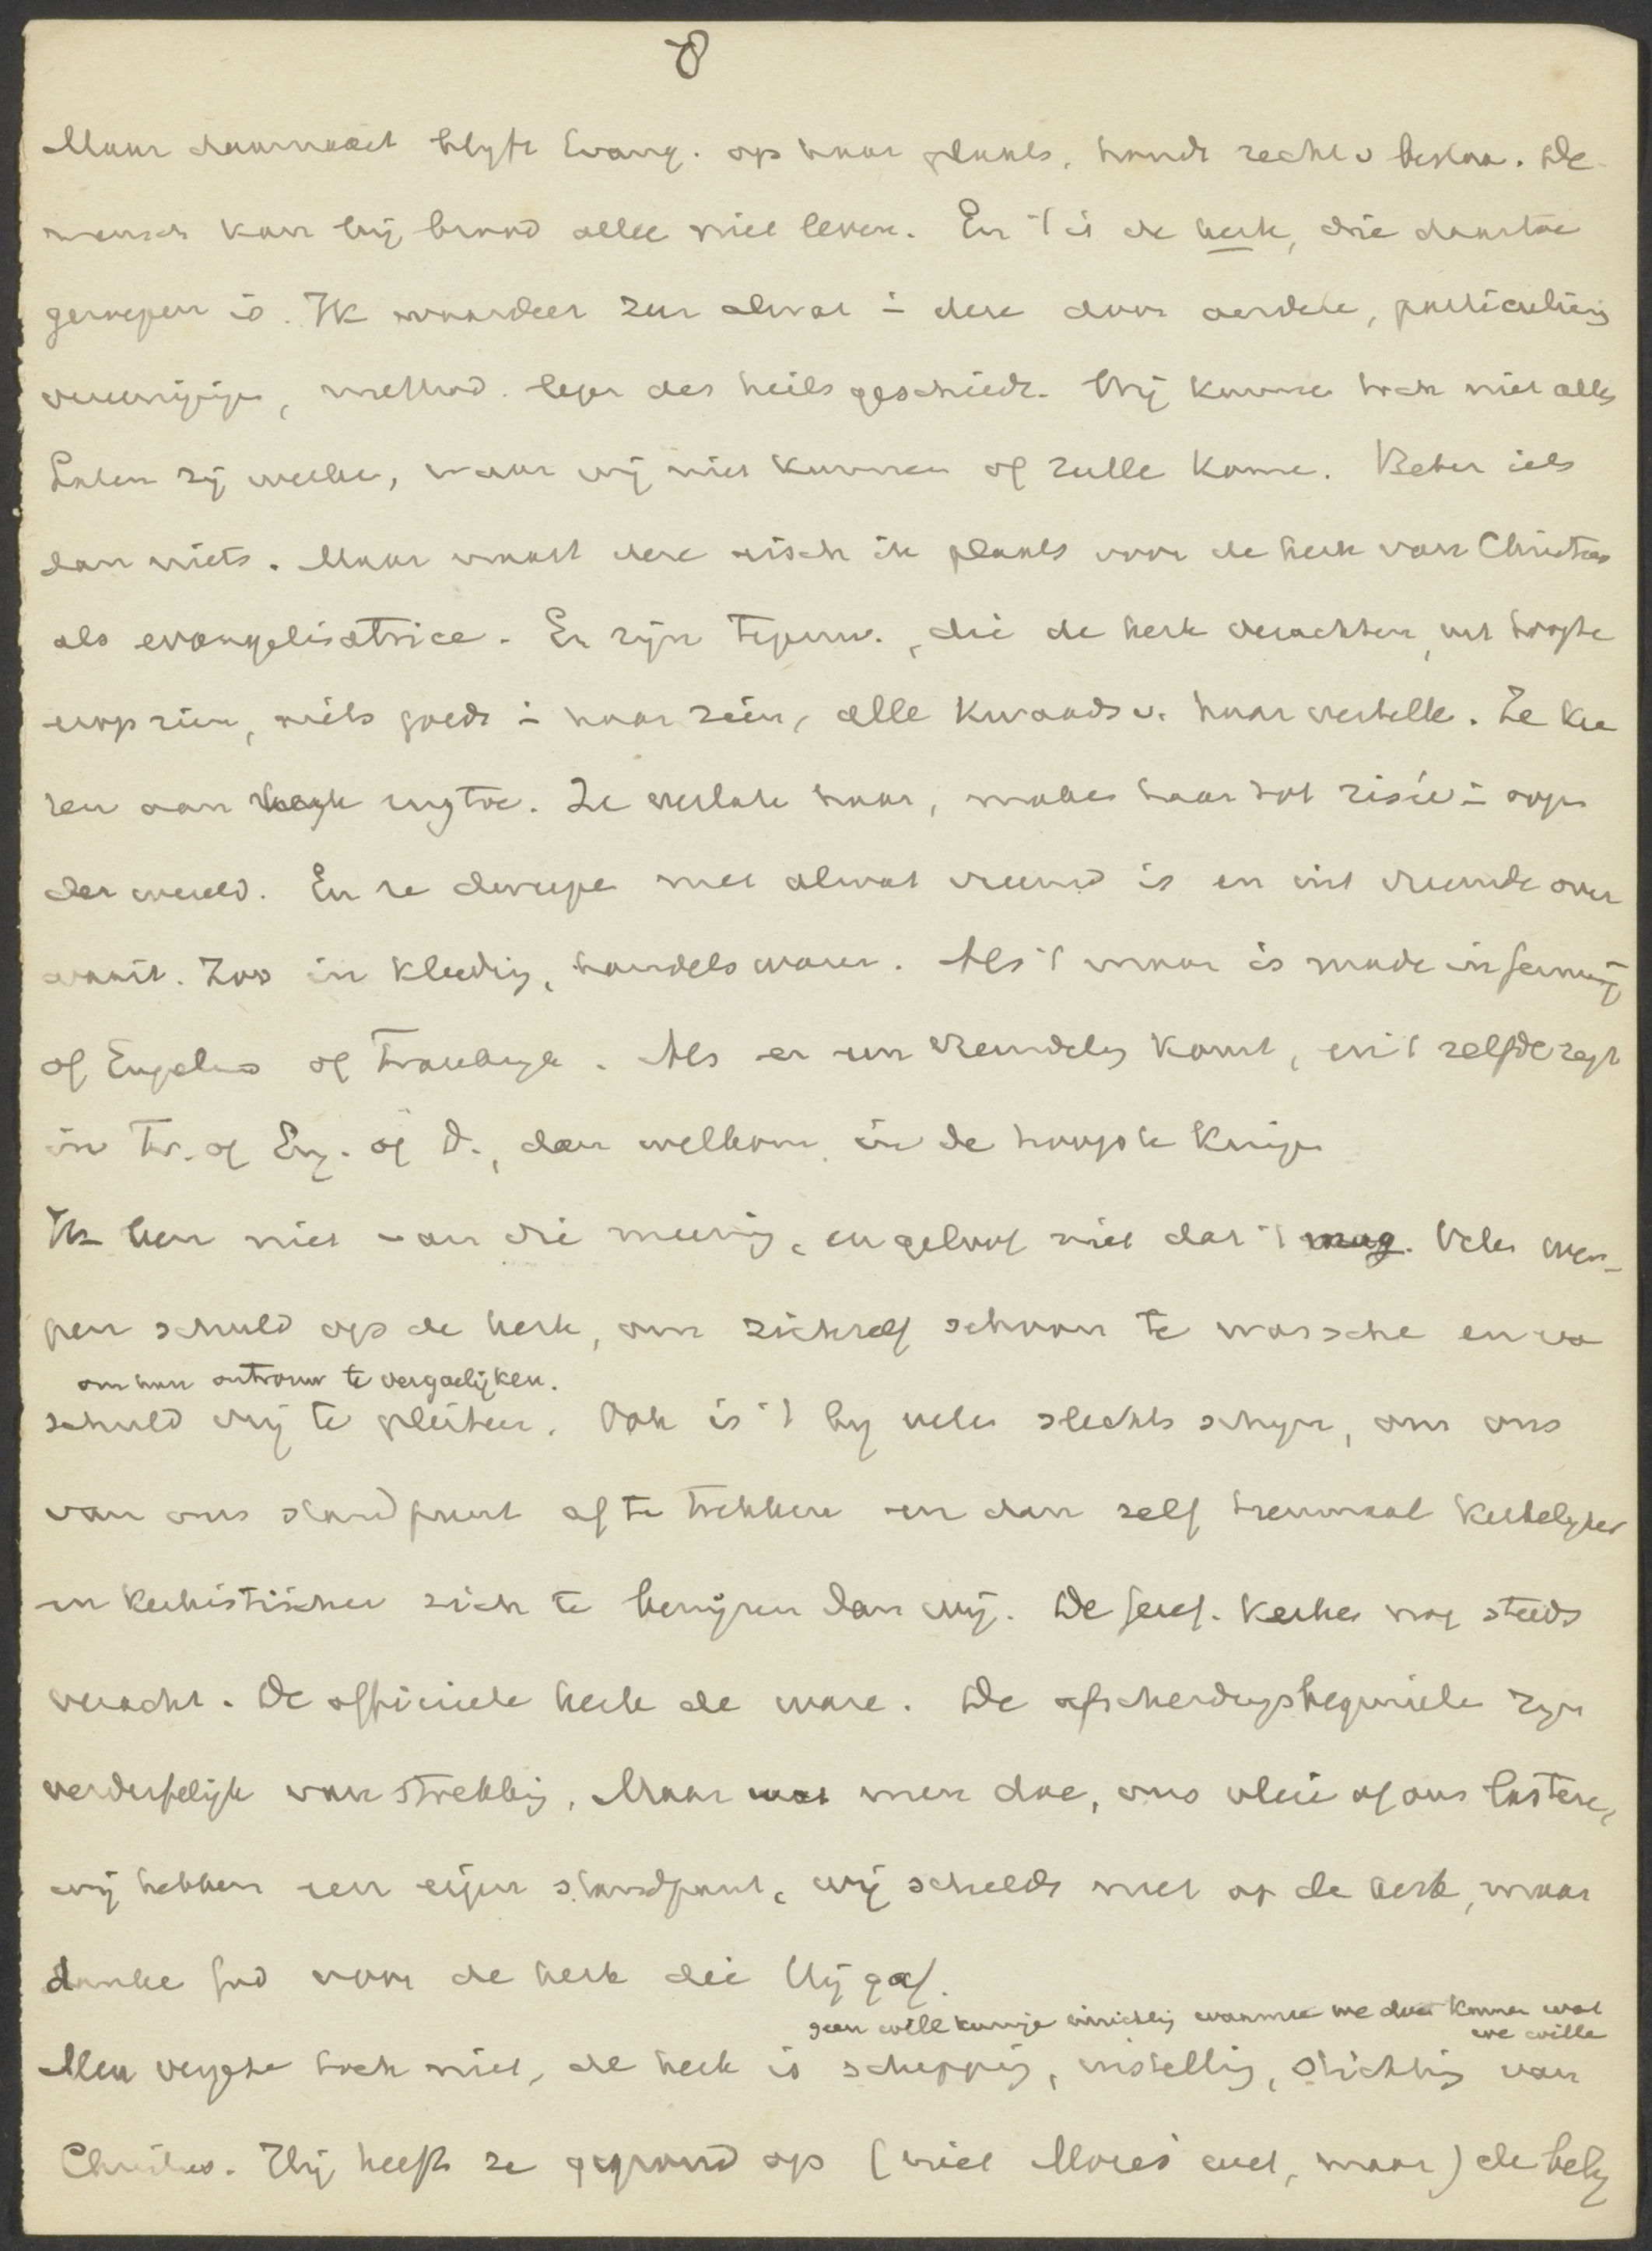 8
Maar daarnaast blyft Evang. op haar plaats, haar recht v bestaa. De
mensch kan bij brood allee niet leven. En 't is de kerk, die daartoe
geroepen is. Ik waardeer zeer alwat i deze door aerdere, particuliere
vereenigige, method. leger des heils geschiedt. Wij kunne toch niet alles
Laten zij werke, waar wij niet kunnen of zulle kome. Beter iets
dan niets. Maar naast deze eisch ik plaats voor de kerk van Christus
als evangelisatrice. Er zijn tegenw., die de kerk verachten, uit hoogte
erop zien, niets goeds i haar zien, alle kwaads v. haar vertelle. Ze ke
ren aan rugtoe. Ze verlate haar, make haar tot risée i ooge
der wereld. En ze dwepe met alwat vreemd is en uit vreemde over
waait. Zoo in kleeding, handelswaren. Als 't maar is made in Germany
of Engelsch of Frankryk. Als er een vreemdeling komt, en 't zelfde zegt
in Fr. of Eng. of D., dan welkom in de hoogste kringe
Ik ben niet van die meening, en geloof niet dat 't mag. Vele wer-
pen schuld op de kerk, om zichzelf schoon te wassche en va
om hun ontrouw te vergoelijken.
schuld vrij te pleiten. Ook is 't by vele slechts schyn, om ons
van ons standpunt af te trekken en dan zelf tienmaal kerkelyker
en kerkistischer zich te bewijzen dan wij. De Geref. kerken nog steeds
veracht. De officieele kerk de ware. De afscheidingsbeginsele zyn
verderfelijk van strekking. Maar wat men doe, ons vleie of ons lastere,
wij hebben een eigen standpunt, wij schelde niet op de kerk, maar
danke God voor de kerk die Hij gaf.
geen willekeurige inrichting waarmee we doen kunnen wat
we wille
Men vergete toch niet, de kerk is schepping, instelling, stichting van
Christus. Hij heeft ze gegrond op (niet Mozes' wet, maar) de bely